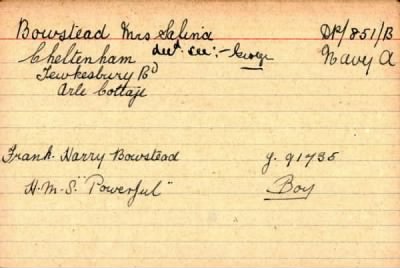 Bowstead Mrs Salina DP/851/B
decd. see:- George
Cheltenham Navy A
Tewkesbury Rd
Arle Cottage
Frank Harry Bowstead J. 91735
H.M.S. "Powerful" Boy